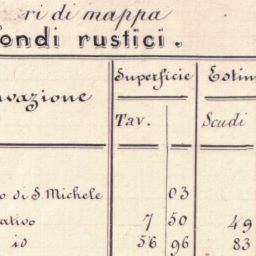 ri di mappa
ondi rustici.
Superficie Estim
vazione
Tav. Scudi
o di S. Michele 03
ativo 7 50 49
id 56 96 83